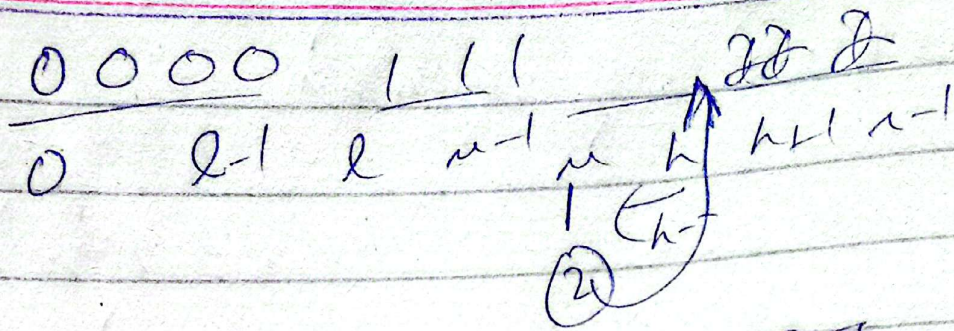 0 0 0 0 1 1 1 2 2 2
0 l-1 l m-1 m h h+1 n-1
1 h-
2